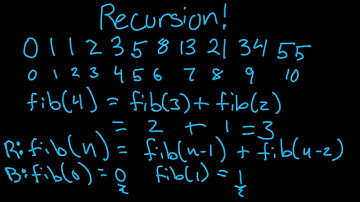 Recursion!
0 1 1 2 3 5 8 13 21 34 55
0 1 2 3 4 5 6 7 8 9 10
fib(4) = fib(3) + fib(2)
= 2 + 1 = 3
R: fib(n) = fib(n-1) + fib(n-2)
B: fib(0) = 0 fib(1) = 1